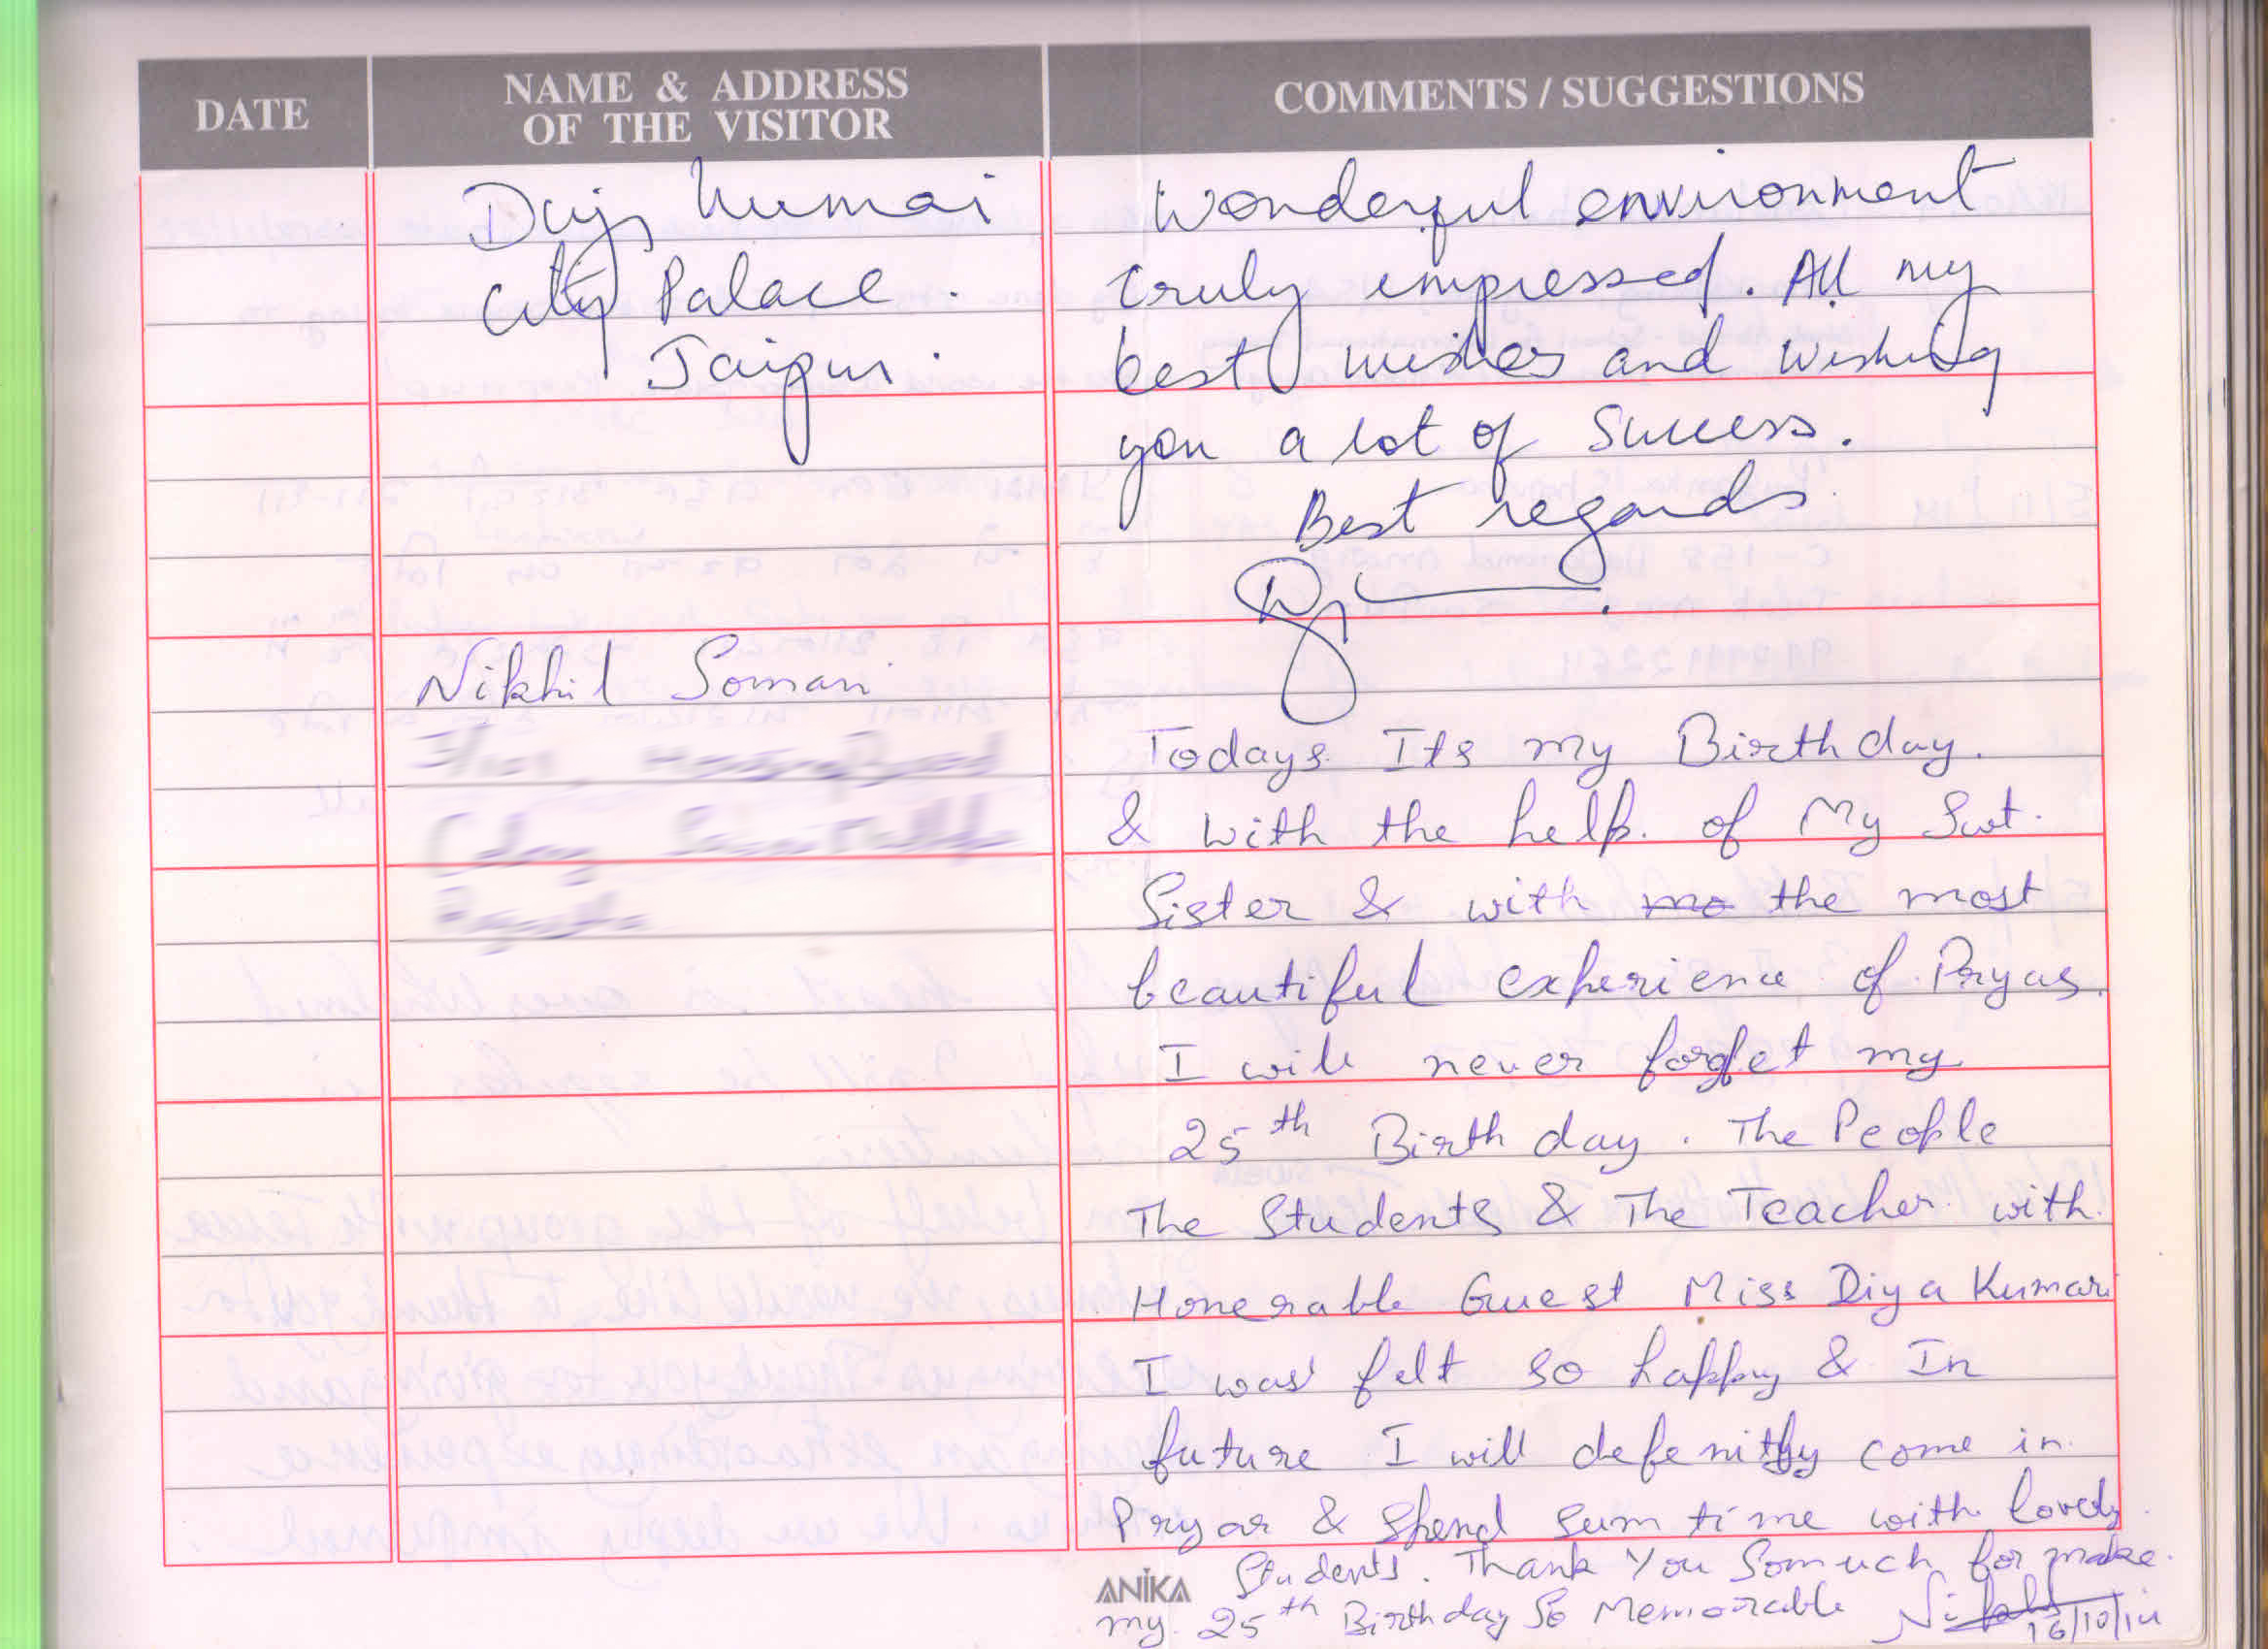 DATE
NAME & ADDRESS
OF THE VISITOR
COMMENTS / SUGGESTIONS
Kumari
City Palace.
Jaipur.
Wonderful environment
truly impressed. All my
best wishes and wishing
you a lot of success.
Best regards
Nikhil Soman
Todays Its my Birthday.
& with the help. of My Swt.
Sister & with the most
beautiful experience of Pryas.
I will never forget my
25th Birthday. The People
The Students & The Teacher with
Honerable Guest Miss Diya Kumari
I was felt so happy & In
future I will defenitly come in
Pryas & Spend sum time with lovely
Students. Thank You Somuch for make
ANIKA
my 25th Birthday So Memorable
16/10/14